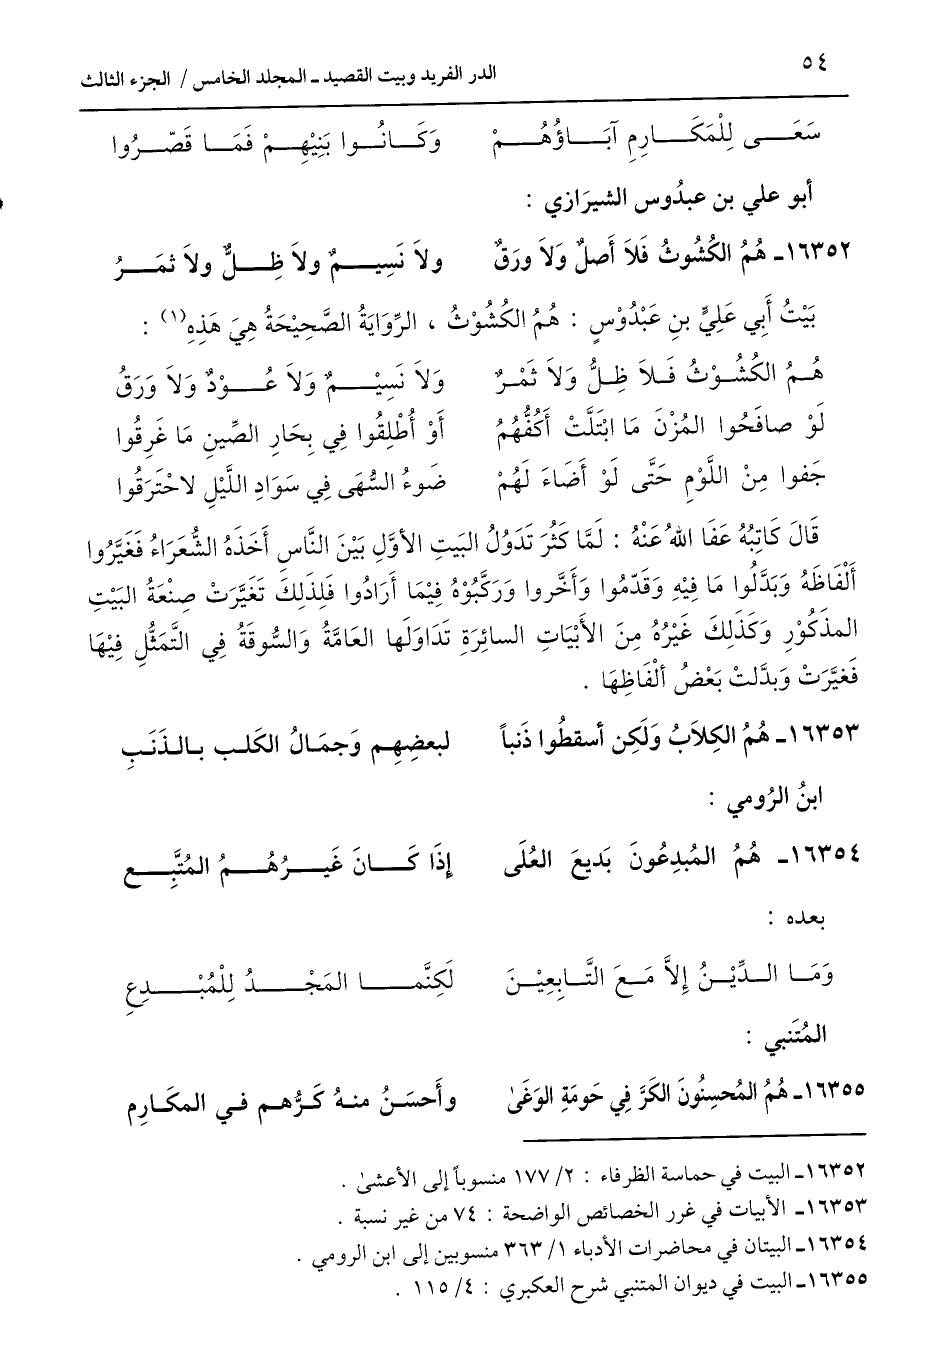 ٥٤ الدر الفريد وبيت القصيد ـ المجلد الخامس / الجزء الثالث
سَعَـــى لِلْمَكَـــارِمِ آبَـــاؤُهُـــمْ وَكَـــانُـــوا بَنِيْهِـــمْ فَمَـــا قَصّـــرُوا
أبو علي بن عبدُوس الشيرَازي :
١٦٣٥٢ـ هُمُ الكُشُوثُ فَلاَ أَصلٌ وَلاَ ورَقٌ ولاَ نَسِيـــمٌ ولاَ ظِـــلٌّ ولاَ ثمَـــرُ
بَيْتُ أَبِي عَلِيٍّ بنِ عَبْدُوْسٍ : هُمُ الكُشُوْثُ ، الرِّوَايَةُ الصَّحِيْحَةُ هِيَ هَذِهِ(١) :
هُـــمُ الكُشُـــوْثُ فَـــلاَ ظِلٌّ وَلاَ ثَمْرٌ وَلاَ نَسِيْـــمٌ وَلاَ عُـــوْدٌ وَلاَ وَرَقُ
لَوْ صافَحُوا المُزْنَ مَا ابْتَلَّتْ أَكُفُّهُمُ أَوْ أُطْلِقُوا فِي بِحَارِ الصِّينِ مَا غَرِقُوا
جَفوا مِنْ اللَّوْمِ حَتَّى لَوْ أَضَاءَ لَهُمْ ضَوءُ السُّهَى فِي سَوَادِ اللَّيْلِ لاحْتَرَقُوا
قَالَ كَاتِبُهُ عَفَا اللهُ عَنْهُ : لَمَّا كَثُرَ تَدَوُلُ البَيتِ الأوَّلِ بَيْنَ النَّاسِ أَخَذَهُ الشُّعَرَاءُ فَغَيَّرُوا
أَلْفَاظَهُ وَبَدَّلُوا مَا فِيْهِ وَقَدّمُوا وَأَخَّروا وَرَكَّبُوْهُ فِيْمَا أَرَادُوا فَلِذلِكَ تَغَيَّرَتْ صِنْعَةُ البَيْتِ
المذكُوْرِ وَكَذلِكَ غَيْرُهُ مِنَ الأَبْيَاتِ السائرَةِ تَدَاوَلَها العَامَّةُ وَالسُّوقَةُ فِي التَّمَثُّلِ فِيْهَا
فَغيَّرَتْ وَبدَّلتْ بَعْضُ أَلْفَاظِهَا .
١٦٣٥٣ـ هُمُ الكِلاَبُ وَلَكِن أسقطُوا ذَنباً لبعضِهِم وَجمَالُ الكَلب بـالـذَنَبِ
ابنُ الرُومي :
١٦٣٥٤ـ هُمُ المُبدِعُونَ بَديعَ العُلَى إذَا كَـــانَ غَيـــرُهُـــمُ المُتبَّـــعِ
بعده :
وَمَـا الـدِّيْـنُ إلاَّ مَـعَ التَّـابِعِيْـنَ لَكِنَّمـــا المَجْـــدُ لِلْمُبْـــدِعِ
المُتَنبي :
١٦٣٥٥ـ هُمُ المُحسِنُونَ الكَرَّ فِي حَومَةِ الوَغَىٰ وأَحسَـنُ منـهُ كَـرُّهـم فـي المكَـارِم
١٦٣٥٢ـ البيت في حماسة الظرفاء : ٢/ ١٧٧ منسوباً إلى الأعشىٰ .
١٦٣٥٣ـ الأبيات في غرر الخصائص الواضحة : ٧٤ من غير نسبة .
١٦٣٥٤ـ البيتان في محاضرات الأدباء ١/ ٣٦٣ منسوبين إلى ابن الرومي .
١٦٣٥٥ـ البيت في ديوان المتنبي شرح العكبري : ٤/ ١١٥ .